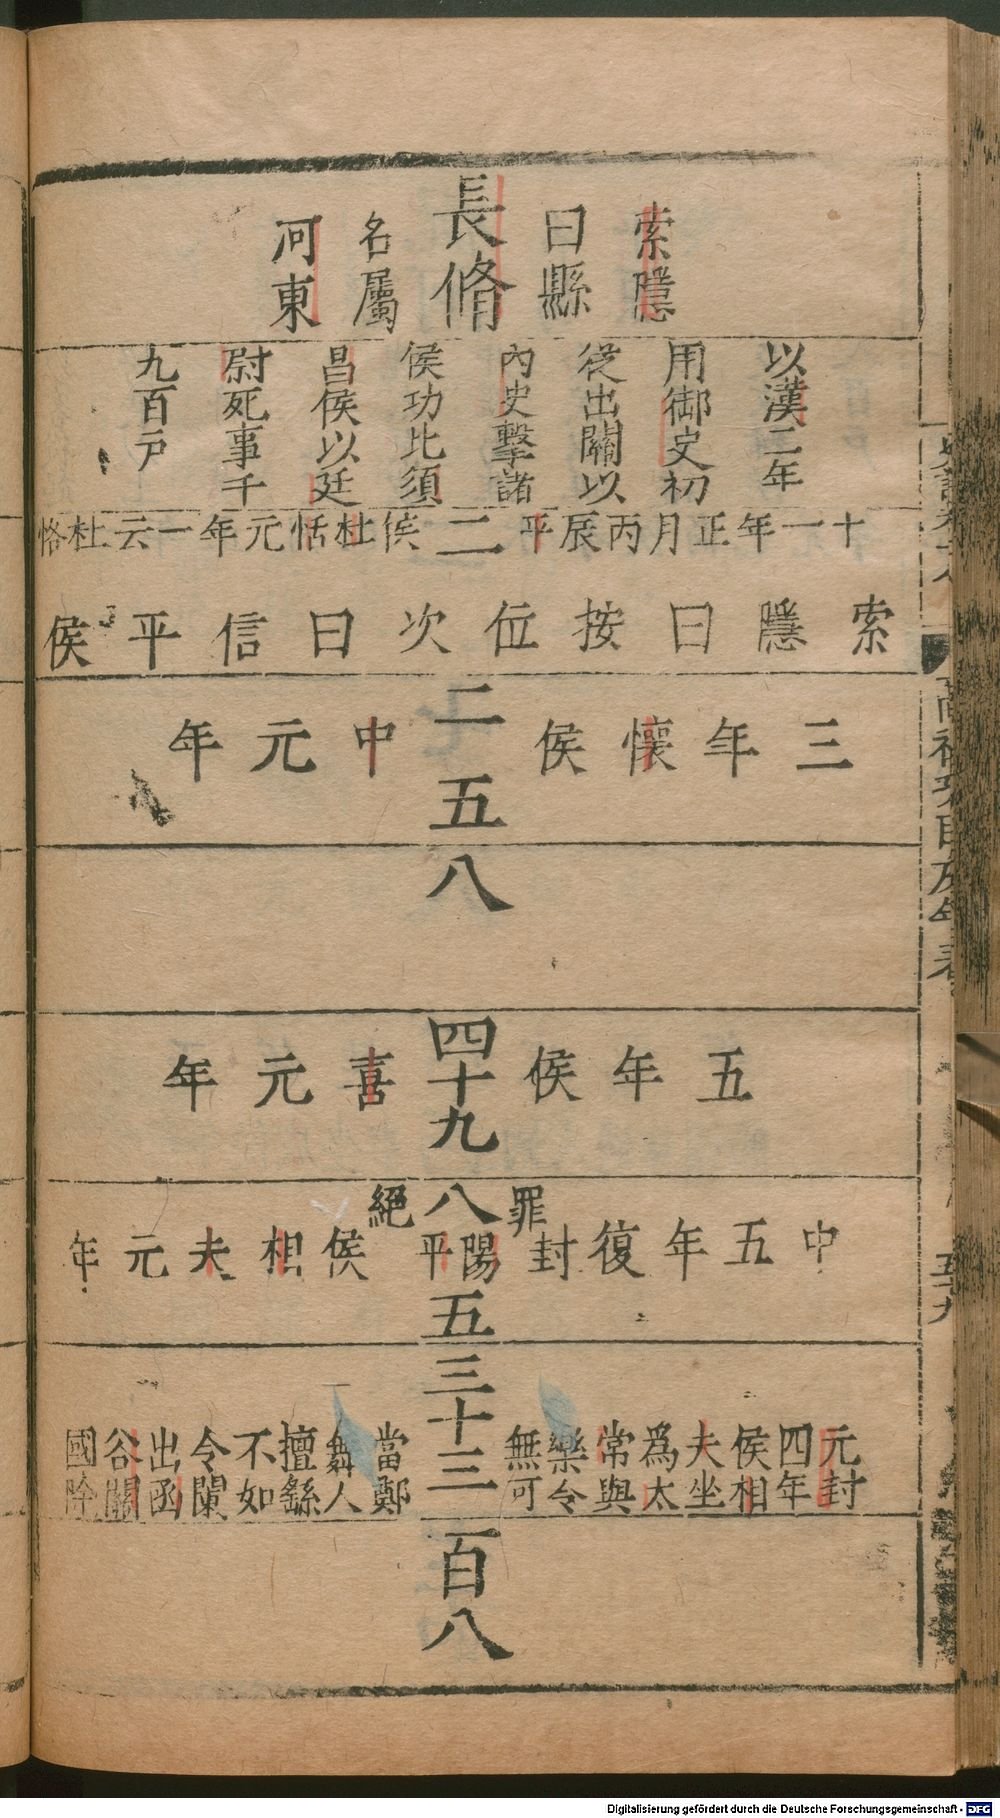 長脩
索隱
曰縣
名屬
河東
以漢二年
用御史初
從出關以
內史擊諸
侯功比須
昌侯以廷
尉死事千
九百戶
十一年正月丙辰平
二
侯杜恬元年一云杜恪
索隱曰按位次曰信平侯
二
三年懷侯
中元年
五
八
四十九
五年侯
喜元年
八
罪
絕
中五年復封
陽平
侯相夫元年
五
三十三
元封
四年
侯相
夫坐
為太
常與
樂令
無可
當鄭
舞人
擅繇
不如
令闌
出函
谷關
國除
百八